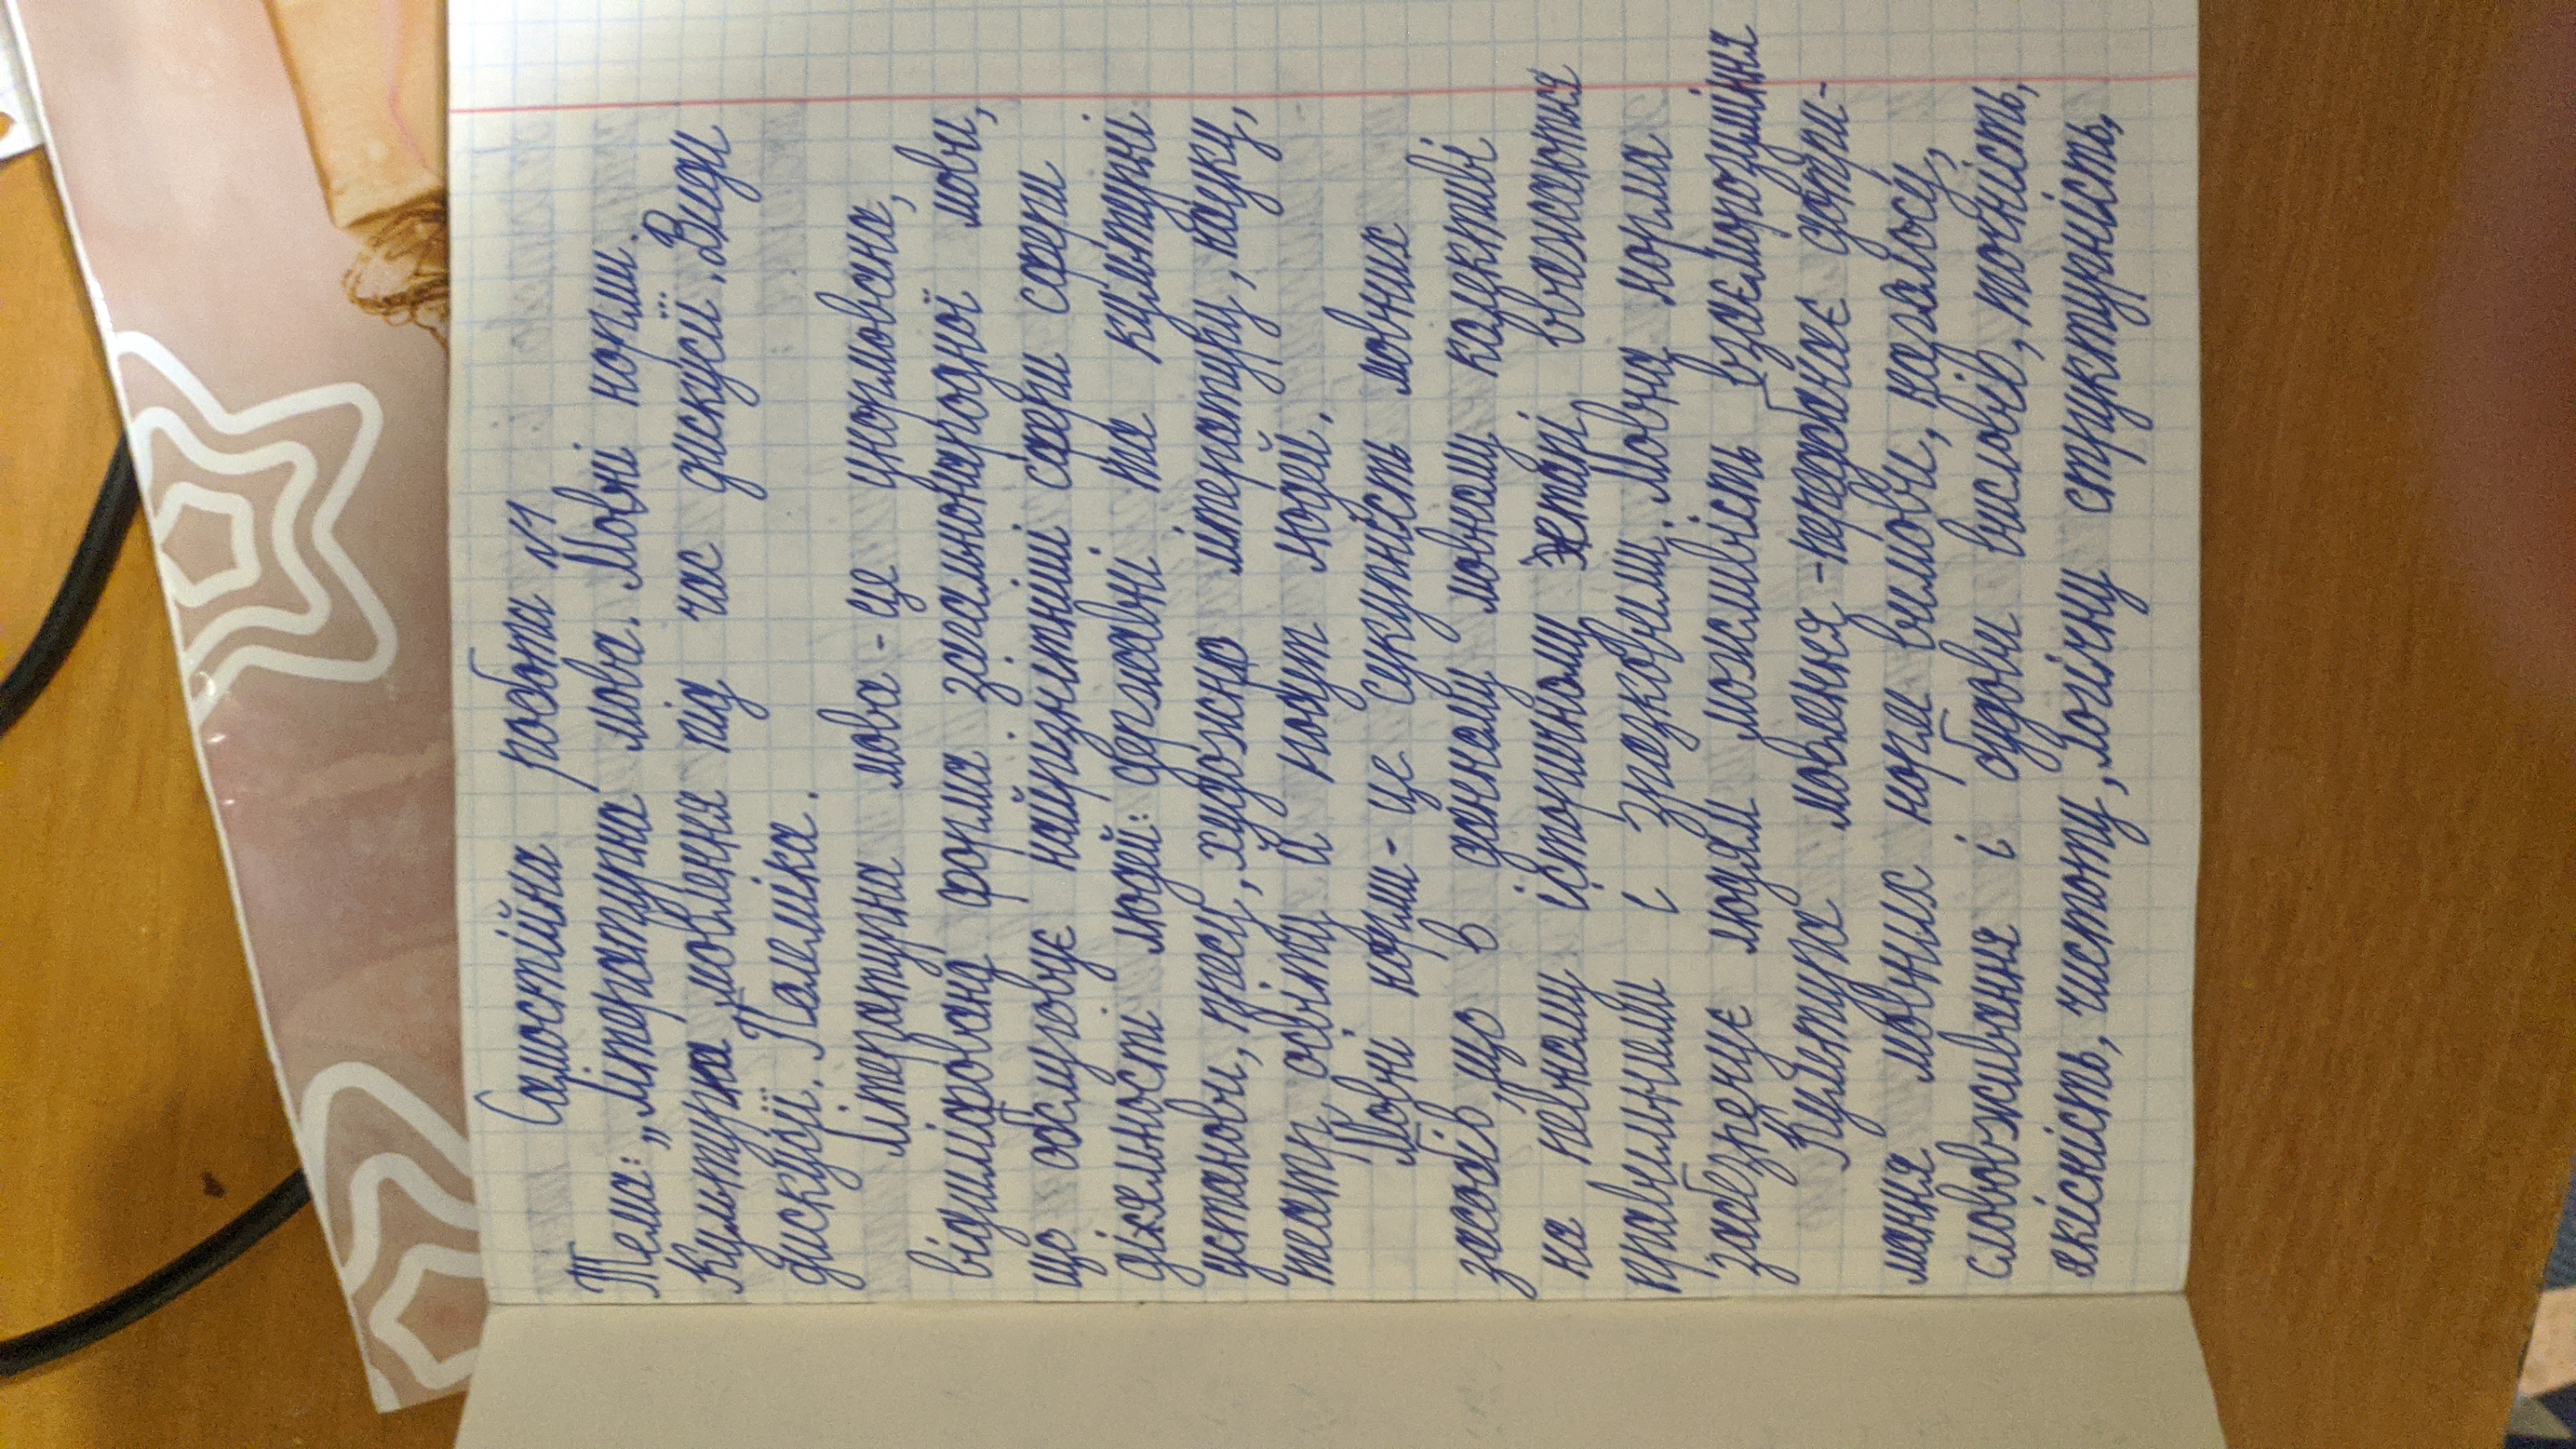 Самостійна робота №1
Тема: „Літературна мова. Мовні норми.
Культура мовлення під час дискусії. Види
дискусії. Полеміка.
Літературна мова - це унормована,
відшліфована форма загальнонародної мови,
що обслуговує найрізнітніші сфери сфери
діяльності людей: державні та культурні
установи, пресу, художню літературу, науку,
театр, освіту й побут людей.
Мовні норми - це сукупність мовних
засобів, що в даному мовному колективі
на певному історичному етапі вважаються
правильними і зразковими. Мовна норма
забезпечує людям можливість взаєморозуміння
Культура мовлення - передбачає дотри-
мання мовних норм вимови, наголосу,
слововживання і будови висловів, точність,
якісність, чистоту, логічну структурність,